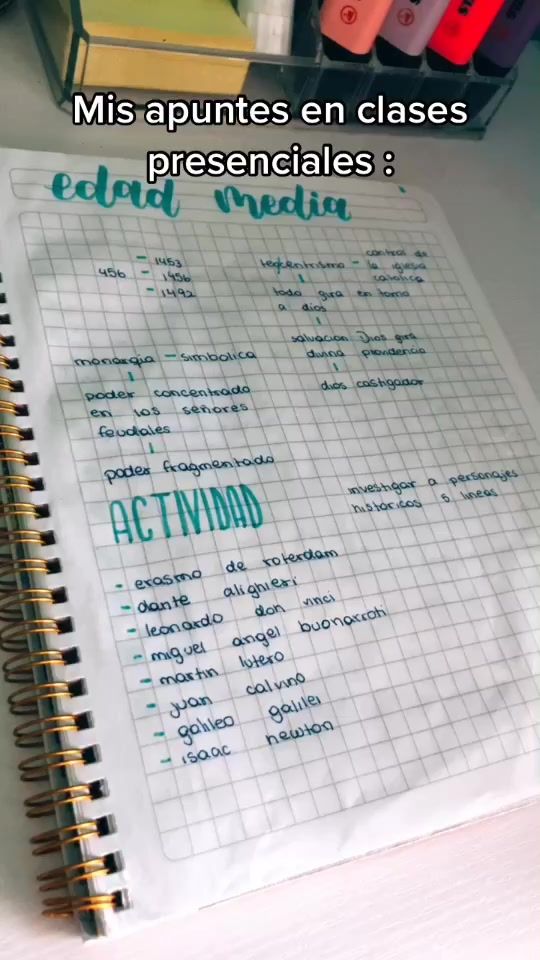 Mis apuntes en clases
presenciales :
edad media
- 1453
456 - 1456
- 1492
monarqia - simbolica
poder concentrado
en los señores
feudales
poder fragmentado
control de
teocentrismo - la iglesia
catolica
todo gira en torno
a dios
salvacion Dios gira
divina providencia
dios castigador
ACTIVIDAD
investigar a personajes
historicos 5 lineas
- erasmo de roterdam
- dante alighieri
- leonardo don vinci
- miguel angel buonarroti
- martin lutero
- juan calvino
- galileo galilei
- isaac newton